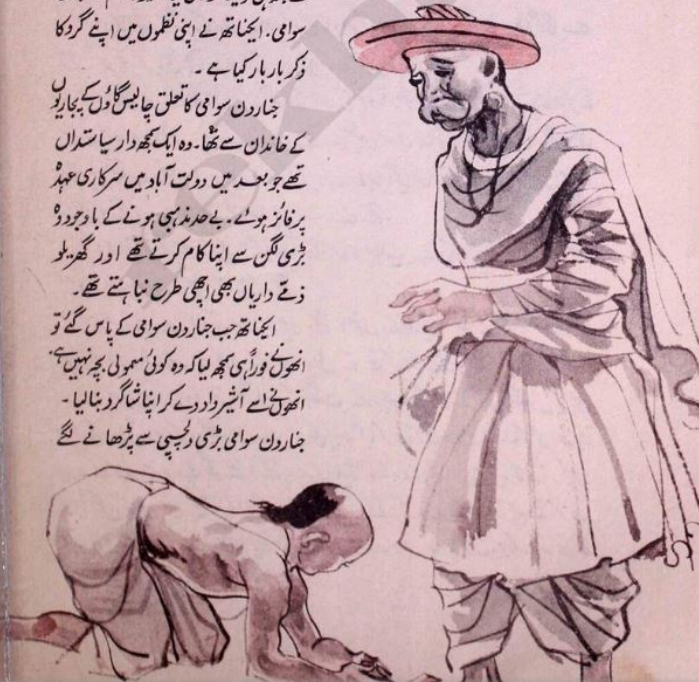 سوامی۔ ایکناتھ نے اپنی نظموں میں اپنے گرو کا
ذکر بار بار کیا ہے۔
جناردن سوامی کا تعلق چالیس گاؤں کے پجاریوں
کے خاندان سے تھا۔ وہ ایک سمجھ دار سیاستداں
تھے جو بعد میں دولت آباد میں سرکاری عہدہ
پر فائز ہوئے۔ بے حد مذہبی ہونے کے باوجود وہ
بڑی لگن سے اپنا کام کرتے تھے اور گھریلو
ذمّے داریاں بھی اچھی طرح نباہتے تھے۔
ایکناتھ جب جناردن سوامی کے پاس گئے تو
انھوں نے فوراً ہی سمجھ لیا کہ وہ کوئی معمولی بچہ نہیں ہے،
انھوں نے اسے آشیرواد دے کر اپنا شاگرد بنا لیا۔
جناردن سوامی بڑی دلچسپی سے پڑھانے لگے